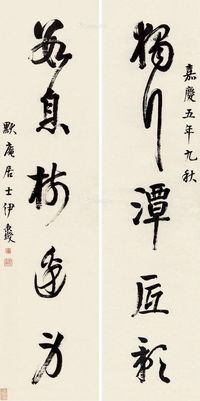 嘉慶五年九秋
獨行潭底影
數息樹邊身
默庵居士伊秉綬